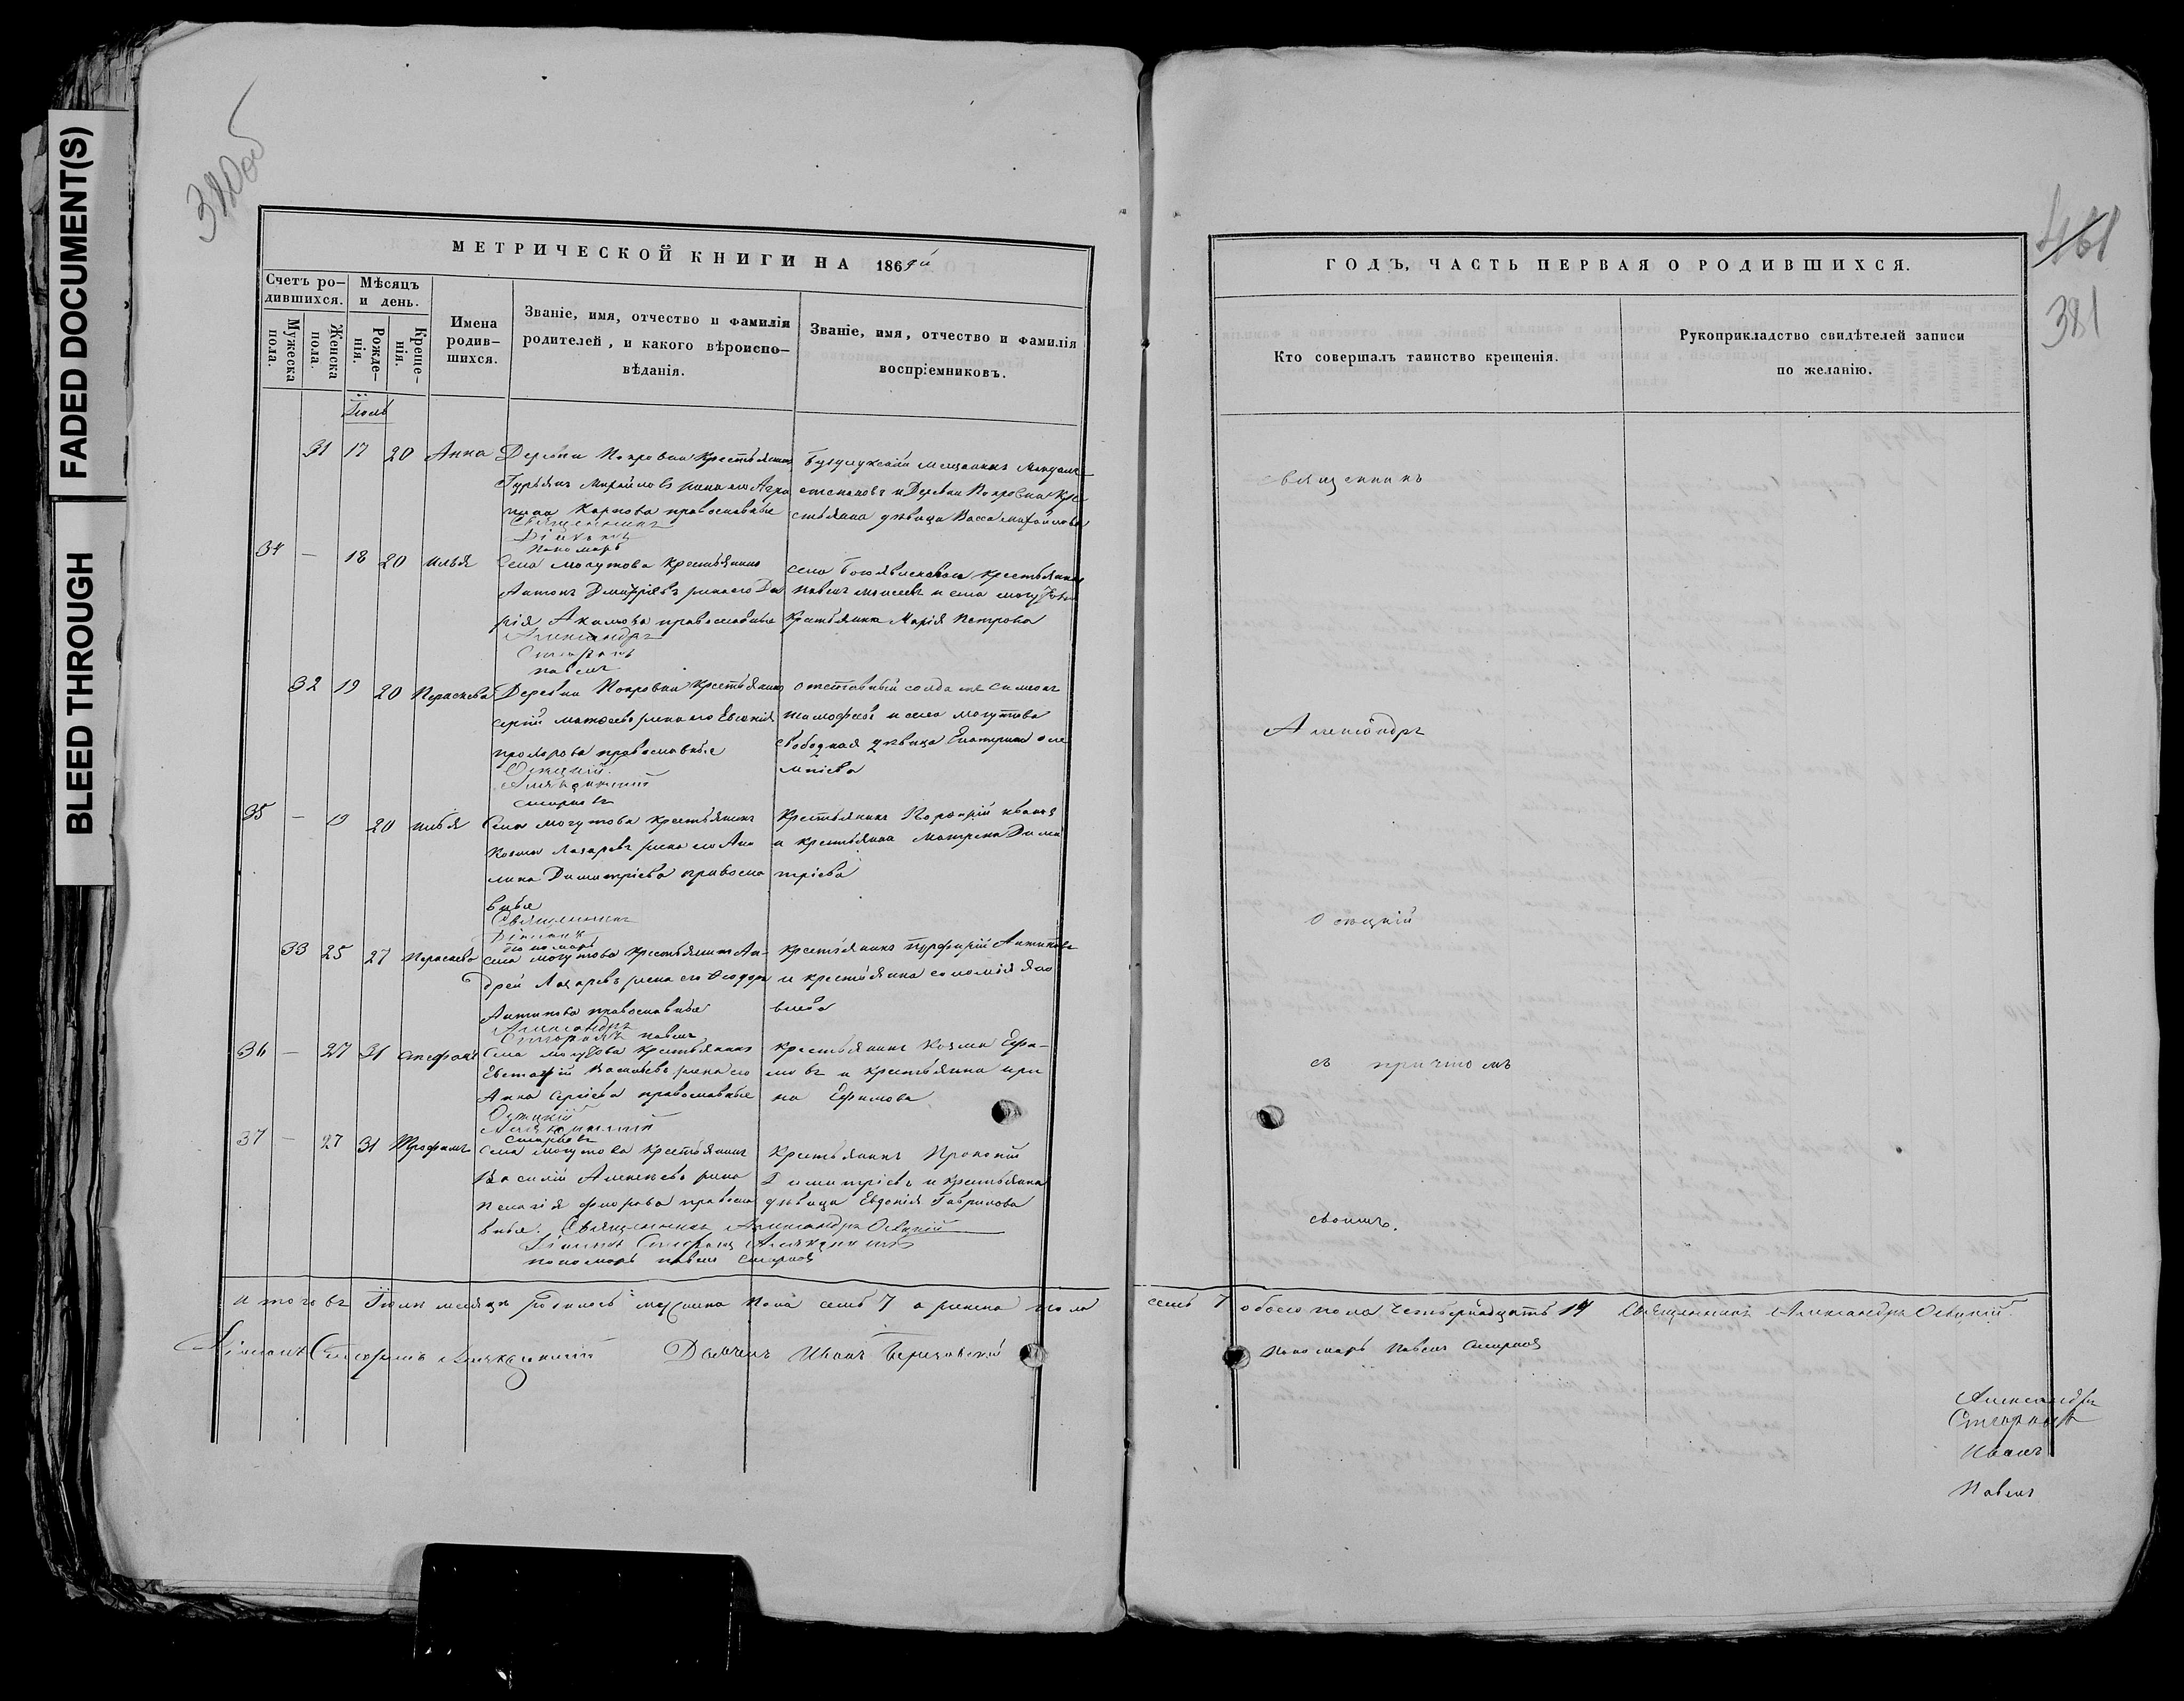 FADED DOCUMENT(S)
BLEED THROUGH
380об
МЕТРИЧЕСКОЙ КНИГИ НА 1869й
Счетъ ро-
дившихся.
Мѣсяцъ
и день.
Мужеска
пола.
Женска
пола.
Рожде-
нія.
Креще-
нія.
Имена
родив-
шихся.
Званіе, имя, отчество и фамилія
родителей, и какого вѣроиспо-
вѣданія.
Званіе, имя, отчество и фамилія
воспріемниковъ.
Іюль
31 17 20 Анна Деревни Покровки крестьянинъ
Гурьянъ Михайловъ жена его Агри
пина Карпова православные
Бузулукскій мещанинъ
Степановъ и Деревни Покровки кре
стьянка дѣвица Васса Михайлова
Священникъ
Діаконъ
Пономарь
34 — 18 20 Илья Села Могутова крестьянинъ
Антонъ Дмитріевъ жена его Да
рія Акимова православные
села Богоявленскаго крестьянинъ
Павелъ Моисеевъ и села Могутова
крестьянка Марія Петрова
Александръ
Стефанъ
Павелъ
32 19 20 Параскева Деревни Покровки крестьянинъ
Сергій Матвеевъ жена его Евфимія
православные
отставный солдатъ Симеонъ
Тимофеевъ и села Могутова
свободная дѣвица Екатерина Але
ксіева
Осецкій
Смирновъ
35 — 19 20 Илья Села Могутова крестьянинъ
Козма Лазаревъ жена его Аку
лина Димитріева правосла
вные
Крестьянинъ Порфирій Ивановъ
и крестьянка Матрена Дими
тріева
Священникъ
Діаконъ
Пономарь
33 25 27 Параскева Села Могутова крестьянинъ Ан-
дрей Лазаревъ жена его Феодора
Антипова православные
крестьянинъ Порфирій Антиповъ
и крестьянка Соломія Яко
влева
Александръ
Стефанъ Павелъ
36 — 27 31 Стефанъ Села Могутова крестьянинъ
Евстафій Васильевъ жена его
Анна Сергіева православные
крестьянинъ Козма Ефи-
мовъ и крестьянка Ири
на Ефимова
Осецкій
Смирновъ
37 — 27 31 Трофимъ Села Могутова крестьянинъ
Василій Алексеевъ жена
Пелагія Флорова правосла
вные.
Крестьянинъ Прокопій
Димитріевъ и крестьянка
дѣвица Евдокія Гаврилова
Священникъ Александръ Осецкій
Діаконъ Стефанъ
Пономарь Павелъ Смирновъ
Итого въ Іюлѣ месяцѣ родилось мужска пола семь 7 а женска пола
Діаконъ Стефанъ Дьячекъ Иванъ
461
381
ГОДЪ, ЧАСТЬ ПЕРВАЯ О РОДИВШИХСЯ.
Кто совершалъ таинство крещенія.
Рукоприкладство свидѣтелей записи
по желанію.
Священникъ
Александръ
Осецкій
съ причтомъ
своимъ.
семь 7 обоего пола четырнадцать 14 Священникъ Александръ Осецкій
Пономарь Павелъ Смирновъ
Александръ
Стефанъ
Иванъ
Павелъ